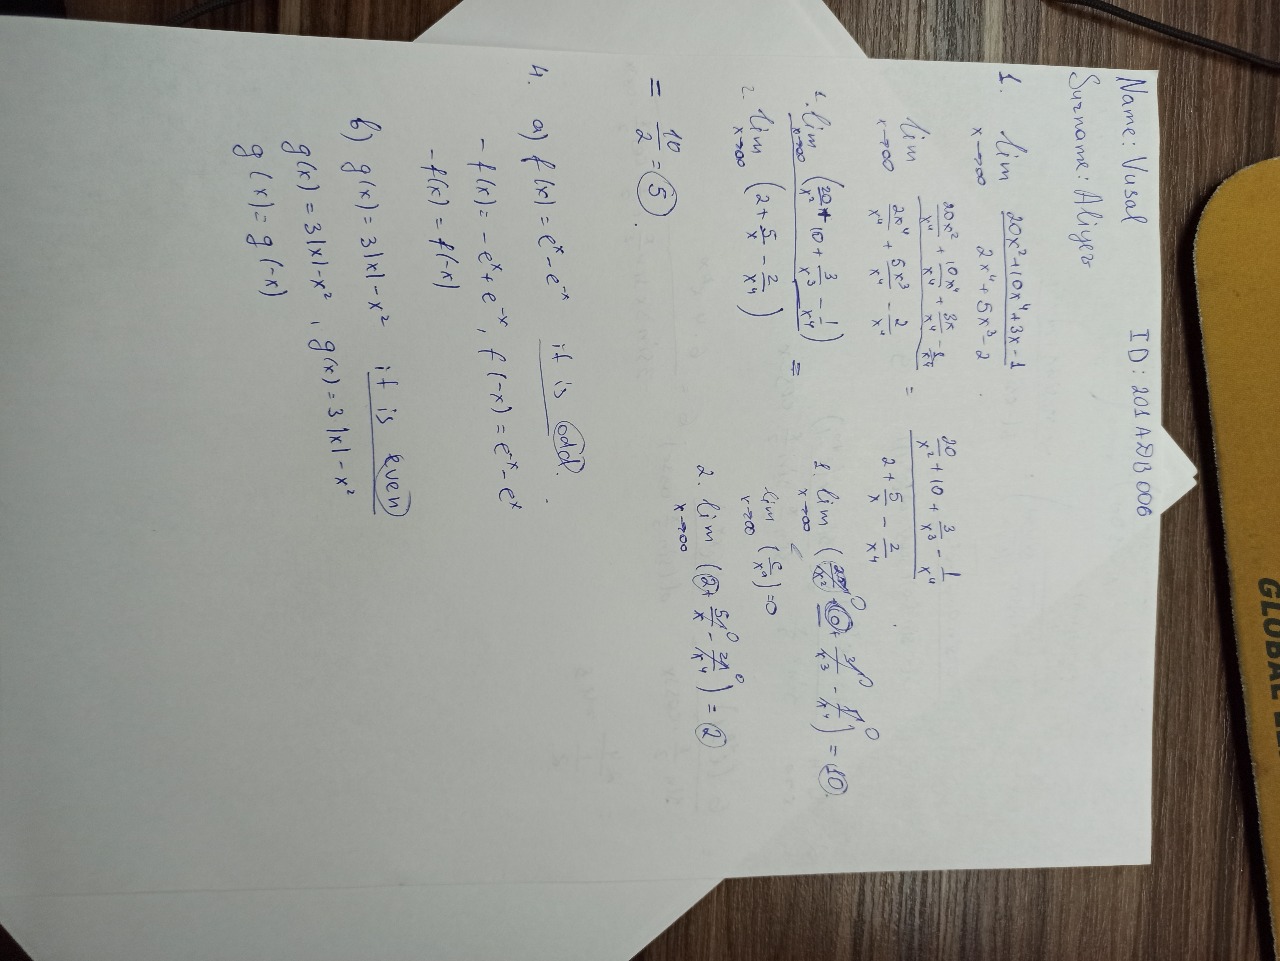 GLOBAL
Name: Vusal ID: 201ADB006
Surname: Aliyev
1. lim x→∞ (20x²+10x⁴+3x-1)/(2x⁴+5x³-2)
lim x→∞ (20x²/x⁴ + 10x⁴/x⁴ + 3x/x⁴ - 1/x⁴)/(2x⁴/x⁴ + 5x³/x⁴ - 2/x⁴) = (20/x² + 10 + 3/x³ - 1/x⁴)/(2 + 5/x - 2/x⁴)
1. lim x→∞ (20/x² + 10 + 3/x³ - 1/x⁴)
2. lim x→∞ (2 + 5/x - 2/x⁴) =
1. lim x→∞ (20/x² 0 + 10 + 3/x³ 0 - 1/x⁴ 0) = 10.
lim x→∞ (c/xᵃ) = 0
2. lim x→∞ (2 + 5/x 0 - 2/x⁴ 0) = 2
= 10/2 = 5.
4. a) f(x) = eˣ - e⁻ˣ it is odd.
-f(x) = -eˣ + e⁻ˣ, f(-x) = e⁻ˣ - eˣ
-f(x) = f(-x)
b) g(x) = 3|x| - x² it is even
g(x) = 3|x| - x², g(x) = 3|x| - x²
g(x) = g(-x)